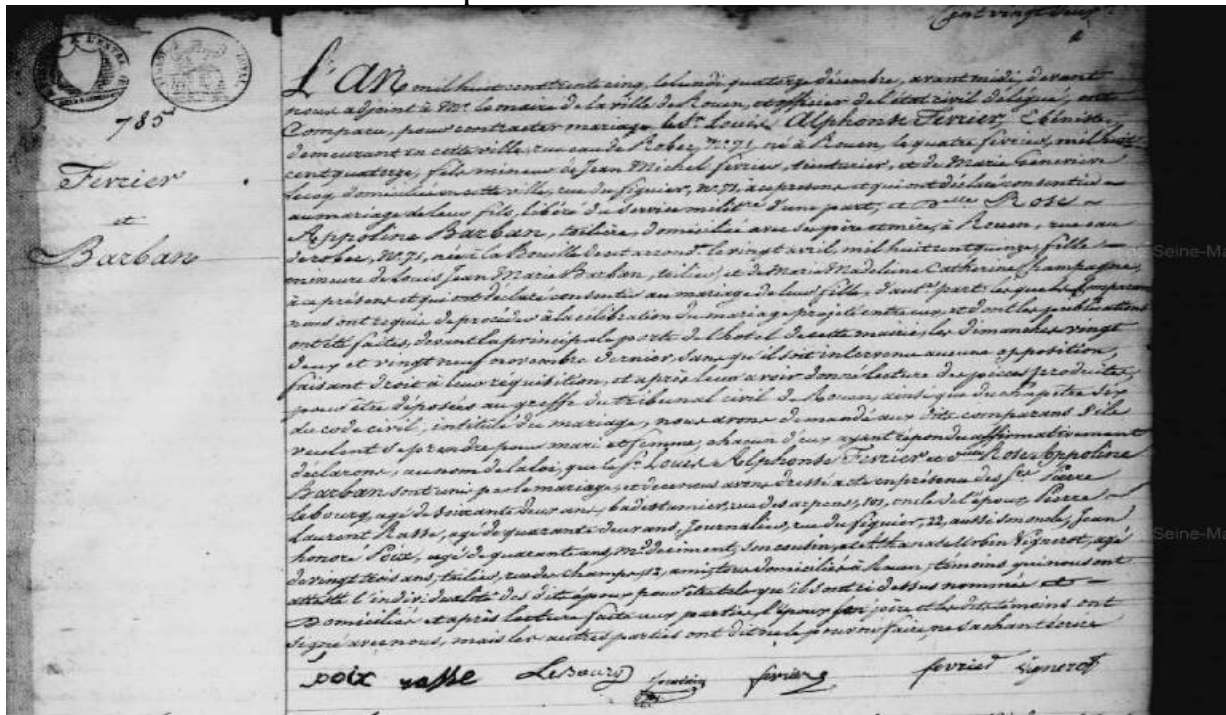 Cent vingt deux
785
Fevrier
et
Barban
L'AN mil huit cent trente cinq, le lundi quatorze décembre, avant midi, devant
nous adjoint à Mr. le maire de la ville de Rouen, et officier de l'état civil délégué, ont
Comparu, pour contracter mariage le Sr. Louis Alphonse Fevrier, Ebéniste,
demeurant en cette ville, rue eau de Robec, No. 71, né à Rouen, le quatre fevrier, mil huit
cent quatorze, fils mineur de Jean Michel fevrier, teinturier, et de Marie Genevieve
Lecoq domiciliés en cette ville, rue du figuier, No. 71, à ce présens et qui ont déclaré consentir
au mariage de leur fils, libéré du service milit.re d'une part, et Delle Rose
Appoline Barban, tailière, domiciliée avec ses père et mère, à Rouen, rue eau
de robec, No. 71, née à la Bouille de cet arrond.t le vingt avril mil huit cent quinze, fille
mineure de Louis Jean Marie Barban, tailleur, et de Marie Madeleine Catherine Champagne,
à ce présens et qui ont déclaré consentir au mariage de leur fille, d'aut.e part: lesquels comparans
nous ont requis de procéder à la célébration du mariage projeté entre eux, et dont les publications
ont été faites, devant la principale porte de l'hotel de cette mairie, les dimanches vingt
deux et vingt neuf novembre dernier, sans qu'il soit intervenu aucune opposition,
faisant droit à leur réquisition, et après leur avoir donné lecture des pièces produites,
pour être déposées au greffe du tribunal civil de Rouen, ainsi que du chapitre six
du code civil, intitulé du mariage, nous avons demandé aux dits comparans s'ils
veulent se prendre pour mari et femme, chacun d'eux ayant répondu affirmativement
déclarons, au nom de la loi, que le Sr. Louis Alphonse Fevrier et Delle Rose Appoline
Barban sont unis par le mariage, et de ce nous avons dressé acte en présence des Srs Pierre
Lebourg, agé de soixante deux ans, badestamier, rue des arpens, 101, oncle de l'époux, Pierre
Laurent Rasse, agé de quarante deux ans, Journalier, rue du figuier, 22, aussi son oncle, Jean
honoré Poix, agé de quarante ans, Md de ciment, son cousin, et Athanase Robin Vignerot, agé
de vingt trois ans, tailleur, rue des champs, 12, ami, tous domiciliés à Rouen, témoins qui nous ont
attesté l'individualité des dits époux pour être tels qu'ils sont ci dessus nommés et
Domiciliés et après lecture faite aux parties, l'époux son père et les dits témoins ont
signé avec nous, mais les autres parties ont dit ne le pouvoir faire, ne sachant écrire
poix rasse Lebourg fevrier fevrier vignerot
Seine-Ma
Seine-Ma